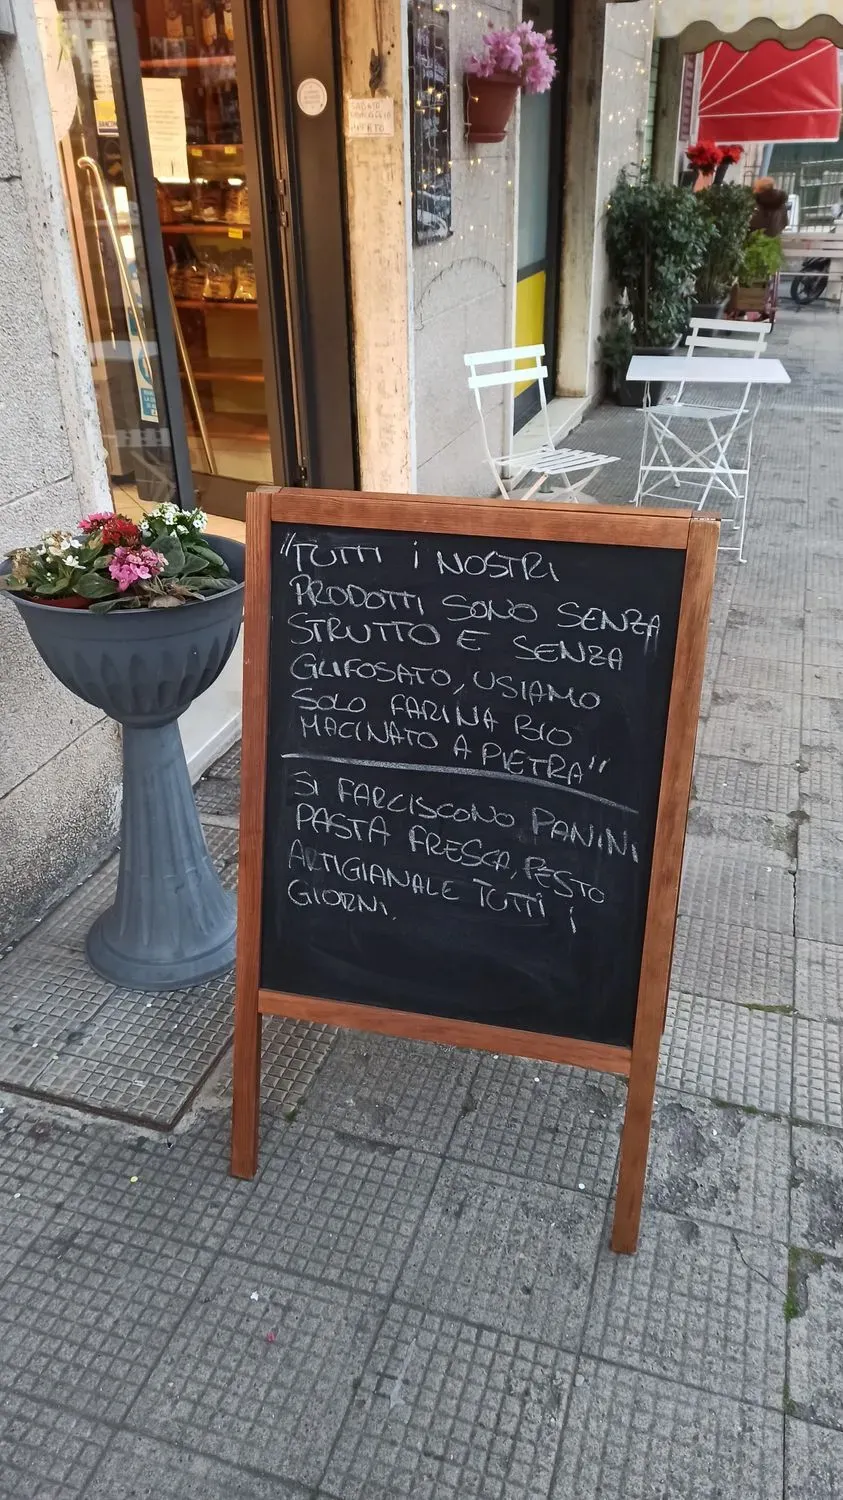 "TUTTI i NOSTRI
PRODOTTI SONO SENZA
STRUTTO E SENZA
GLIFOSATO, USIAMO
SOLO FARINA BIO
MACINATO A PIETRA"
SI FARCISCONO PANINI
PASTA FRESCA, PESTO
ARTIGIANALE TUTTI i
GIORNI.
SABATO
POMERIGGIO
APERTO